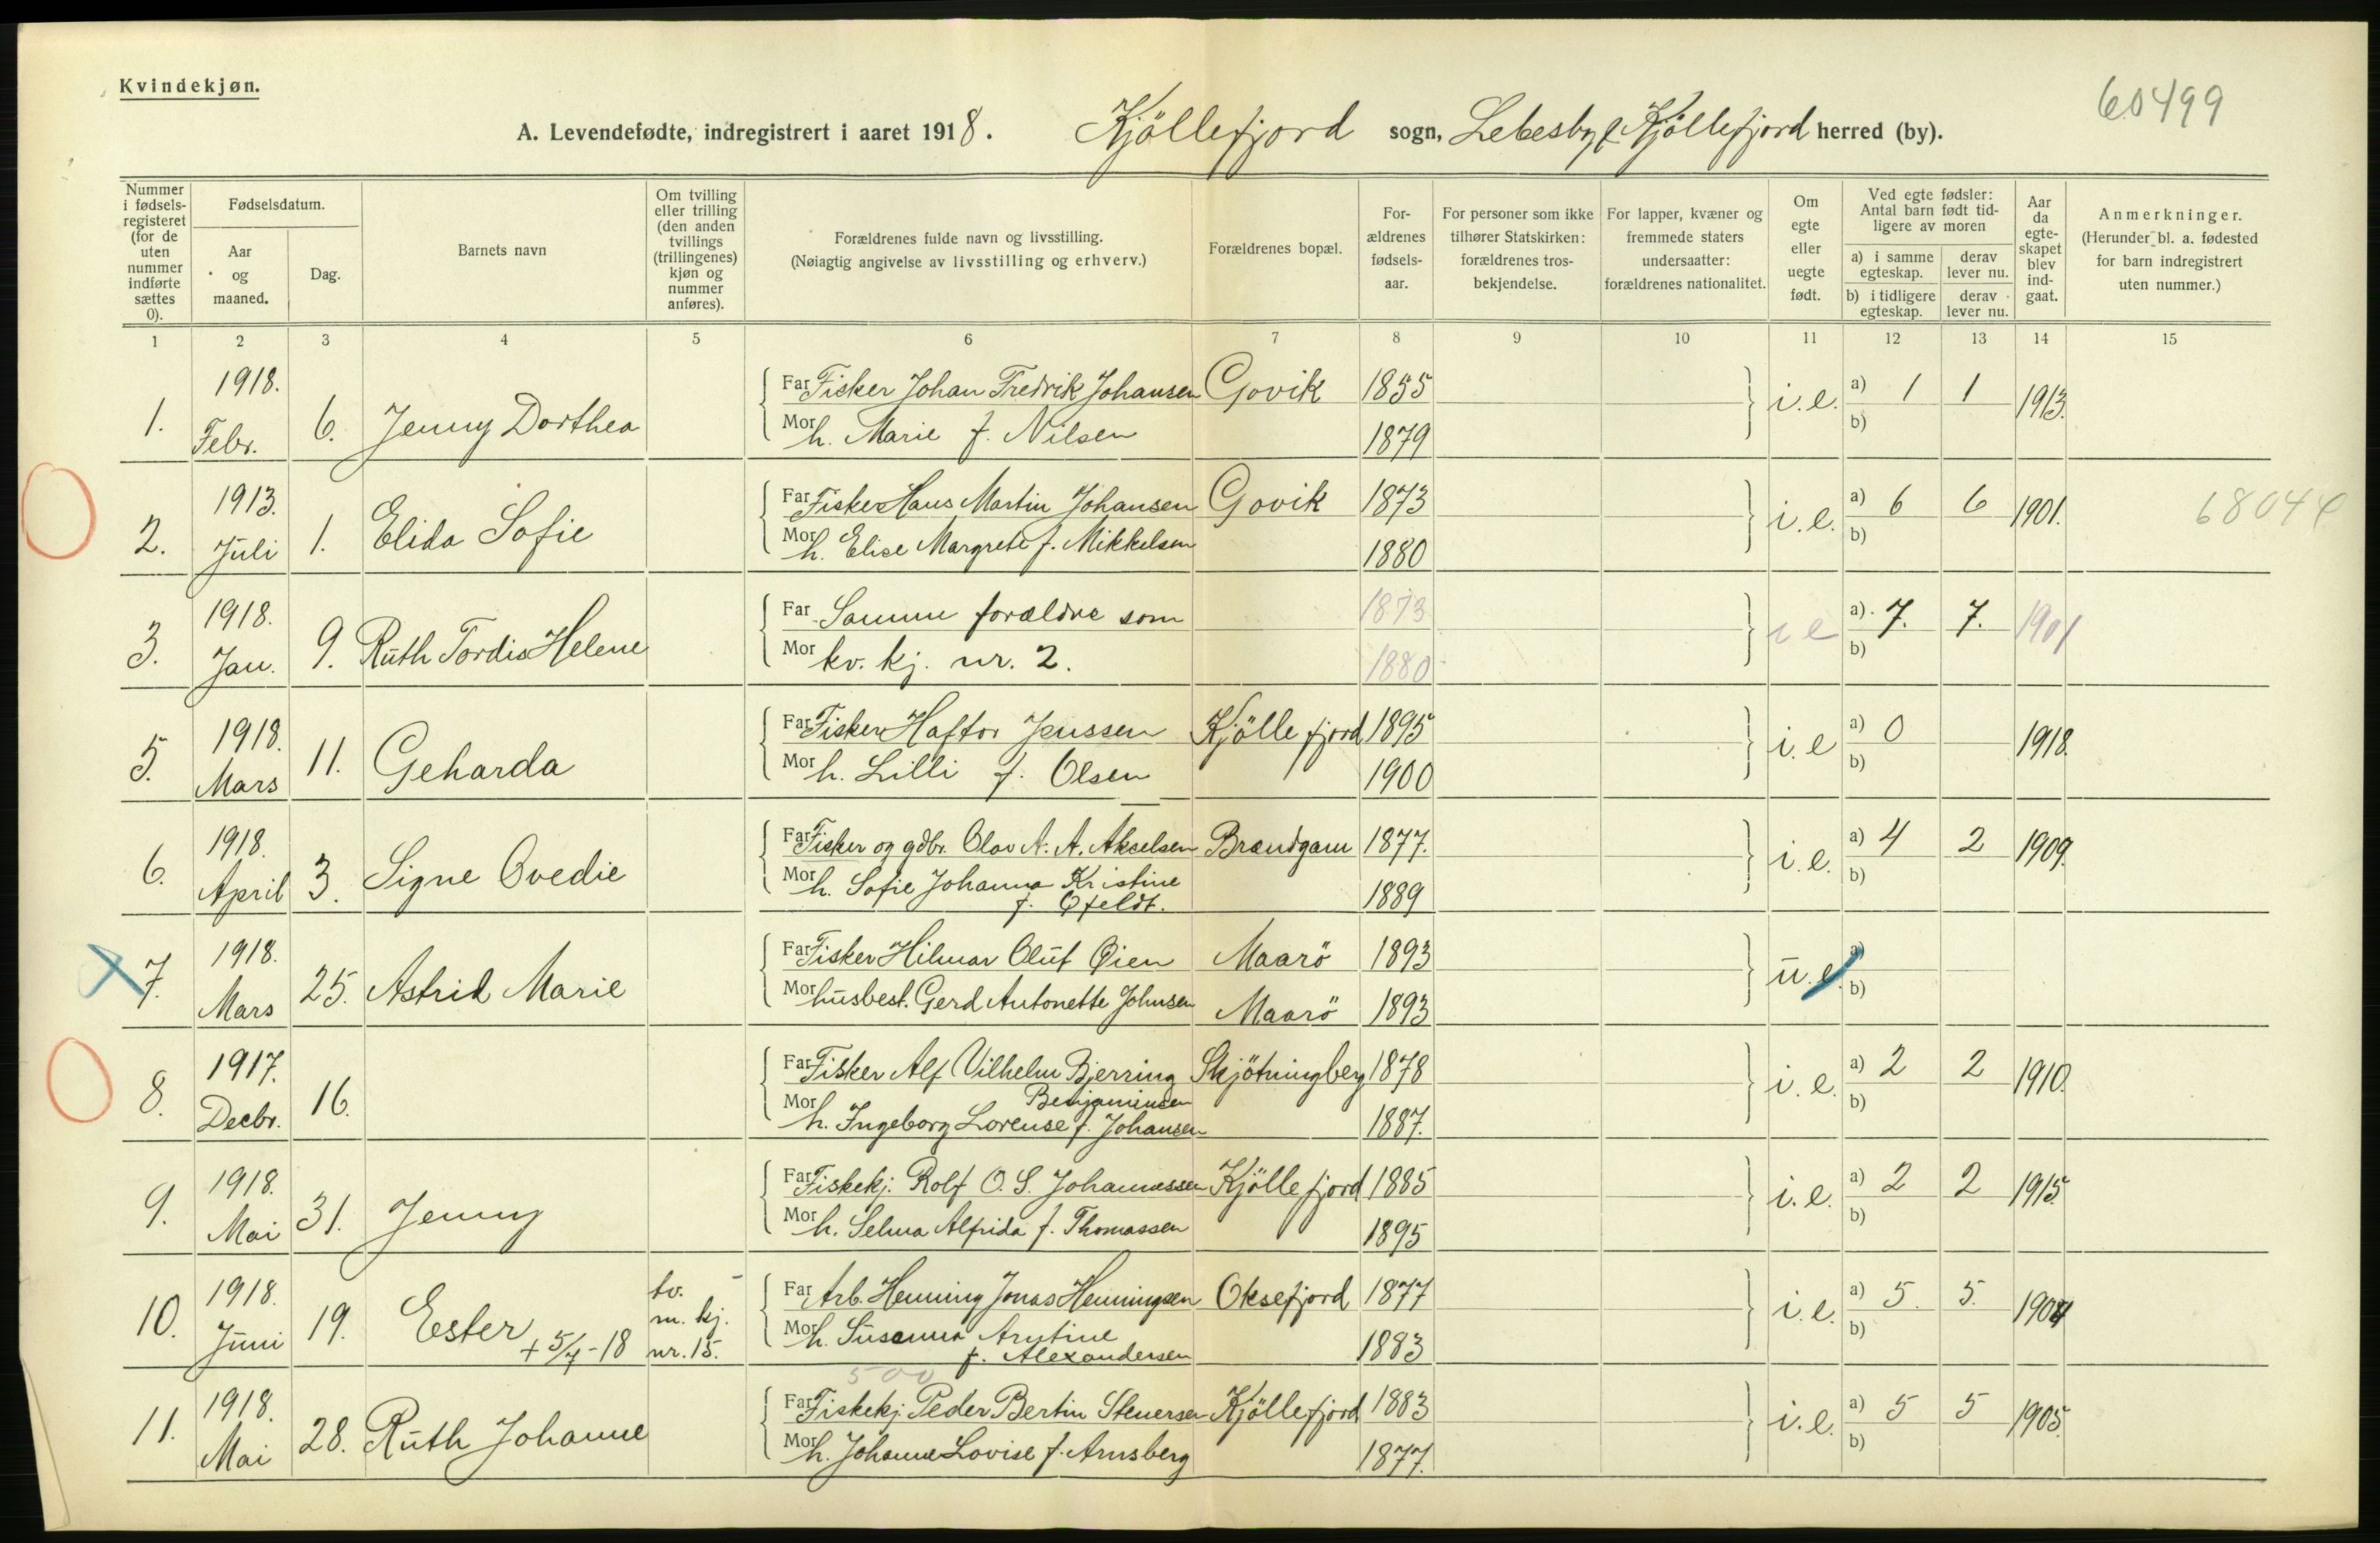 Kvindekjøn.
60499
A. Levendefødte, indregistrert i aaret 1918. Kjöllefjord sogn, Lebesby & Kjöllefjord herred (by).
Nummer i fødsels-registeret (for de uten nummer indførte sættes 0). Fødselsdatum. Aar og maaned. Dag. Barnets navn Om tvilling eller trilling (den anden tvillings (trillingenes) kjøn og nummer anføres). Forældrenes fulde navn og livsstilling. (Nøiagtig angivelse av livsstilling og erhverv.) Forældrenes bopæl. For-ældrenes fødsels-aar. For personer som ikke tilhører Statskirken: forældrenes tros-bekjendelse. For lapper, kvæner og fremmede staters undersaatter: forældrenes nationalitet. Om egte eller uegte født. Ved egte fødsler: Antal barn født tid-ligere av moren a) i samme egteskap. derav lever nu. b) i tidligere egteskap. derav lever nu. Aar da egte-skapet blev ind-gaat. Anmerkninger. (Herunder bl. a. fødested for barn indregistrert uten nummer.)
1 2 3 4 5 6 7 8 9 10 11 12 13 14 15
1. 1918. Febr. 6. Jenny Dorthea Far Fisker Johan Fredrik Johansen Govik 1855 i.e. a) 1 1 1913.
Mor h. Marie f. Nilsen 1879 b)
2. 1913. Juli 1. Elida Sofie Far Fisker Hans Martin Johansen Govik 1873 i.e. a) 6 6 1901. 68044
Mor h. Elise Margrete f. Mikkelsen 1880 b)
3. 1918. Jan. 9. Ruth Tordis Helene Far Samme forældre som 1873 i e a) 7. 7. 1901
Mor kv. kj. nr. 2. 1880 b)
5. 1918. Mars 11. Geharda Far Fisker Haftor Jenssen Kjöllefjord 1895 i.e a) 0 1918.
Mor h. Lilli f. Olsen 1900 b)
6. 1918. April 3. Signe Ovedie Far Fisker og gdbr. Olav A. A. Akselsen Brændgam 1877. i.e. a) 4 2 1909.
Mor h. Sofie Johanna Kristine f. Qfeldt. 1889 b)
7. 1918. Mars 25. Astrid Marie Far Fisker Hilmar Oluf Øien Maarö 1893 u.e. a)
Mor husbest. Gerd Antonette Johnsen Maarö 1893 b)
8. 1917. Decbr. 16. Far Fisker Alf Vilhelm Bjerring Benjaminsen Skjötningberg 1878 i.e. a) 2 2 1910.
Mor h. Ingeborg Lorense f. Johansen 1887. b)
9. 1918. Mai 31. Jenny Far Fiskekj. Rolf O. S. Johannessen Kjöllefjord 1885 i.e. a) 2 2 1915.
Mor h. Selma Alfrida f. Thomassen 1895 b)
10. 1918. Juni 19. Ester + 5/7-18 tv. m. kj. nr. 15. Far Arb. Henning Jonas Henningsen Oksefjord 1877 i.e. a) 5. 5. 1904
Mor h. Susanna Arntine f. Alexandersen 1883 b)
500
11. 1918. Mai 28. Ruth Johanne Far Fiskekj. Peder Bertin Stenersen Kjöllefjord 1883 i.e. a) 5 5 1905.
Mor h. Johanne Lovise f. Arnsberg 1877. b)